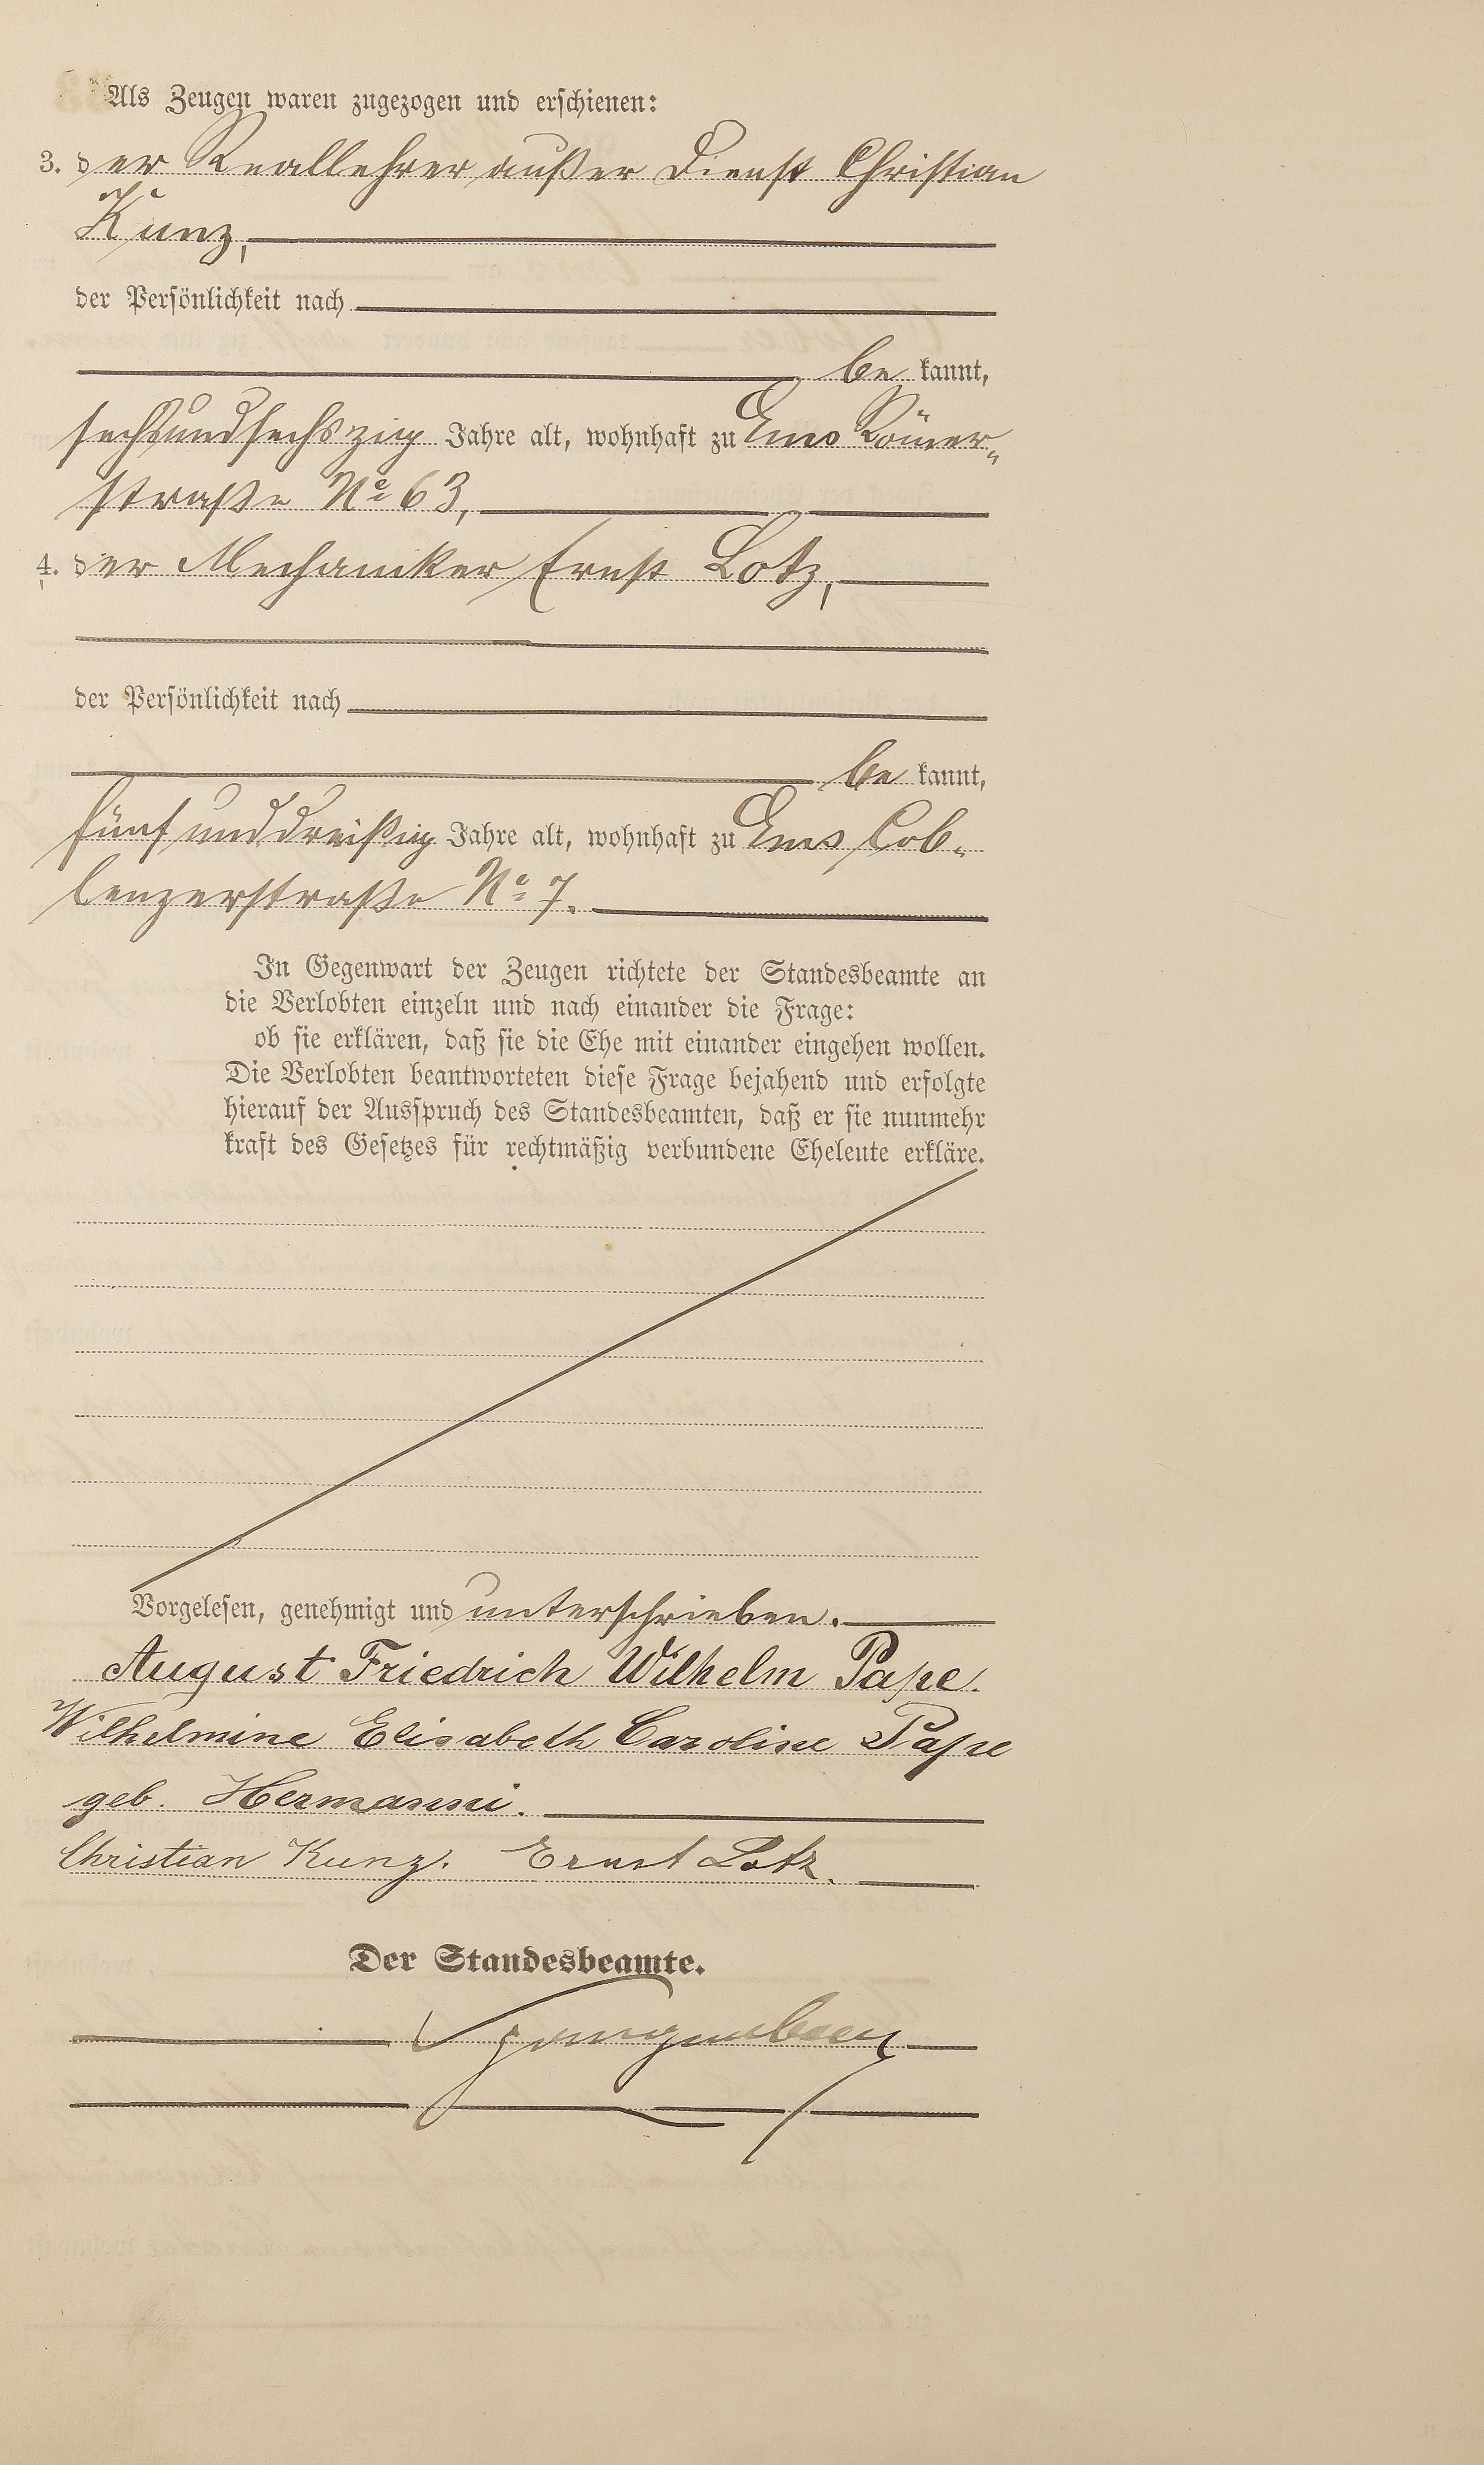 Als Zeugen waren zugezogen und erschienen:
3. der Reallehrer außer Dienst Christian
Kunz,
der Persönlichkeit nach
be kannt,
sechsundsechszig Jahre alt, wohnhaft zu Ems Römer-
straße No 63,
4. der Mechaniker Ernst Lotz,
der Persönlichkeit nach
be kannt,
fünf und dreißig Jahre alt, wohnhaft zu Ems Cob-
lenzerstraße No 7.
In Gegenwart der Zeugen richtete der Standesbeamte an
die Verlobten einzeln und nach einander die Frage:
ob sie erklären, daß sie die Ehe mit einander eingehen wollen.
Die Verlobten beantworteten diese Frage bejahend und erfolgte
hierauf der Ausspruch des Standesbeamten, daß er sie nunmehr
kraft des Gesetzes für rechtmäßig verbundene Eheleute erkläre.
Vorgelesen, genehmigt und unterschrieben.
August Friedrich Wilhelm Pape.
Wilhelmine Elisabeth Caroline Pape
geb. Hermanni.
Christian Kunz. Ernst Lotz.
Der Standesbeamte.